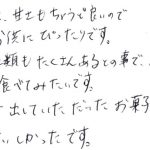 、甘さもちょうど良いので
お供にぴったりです。
類もたくさんあるとの事で、
食べてみたいです。
出していただいたお菓子
しかったです。